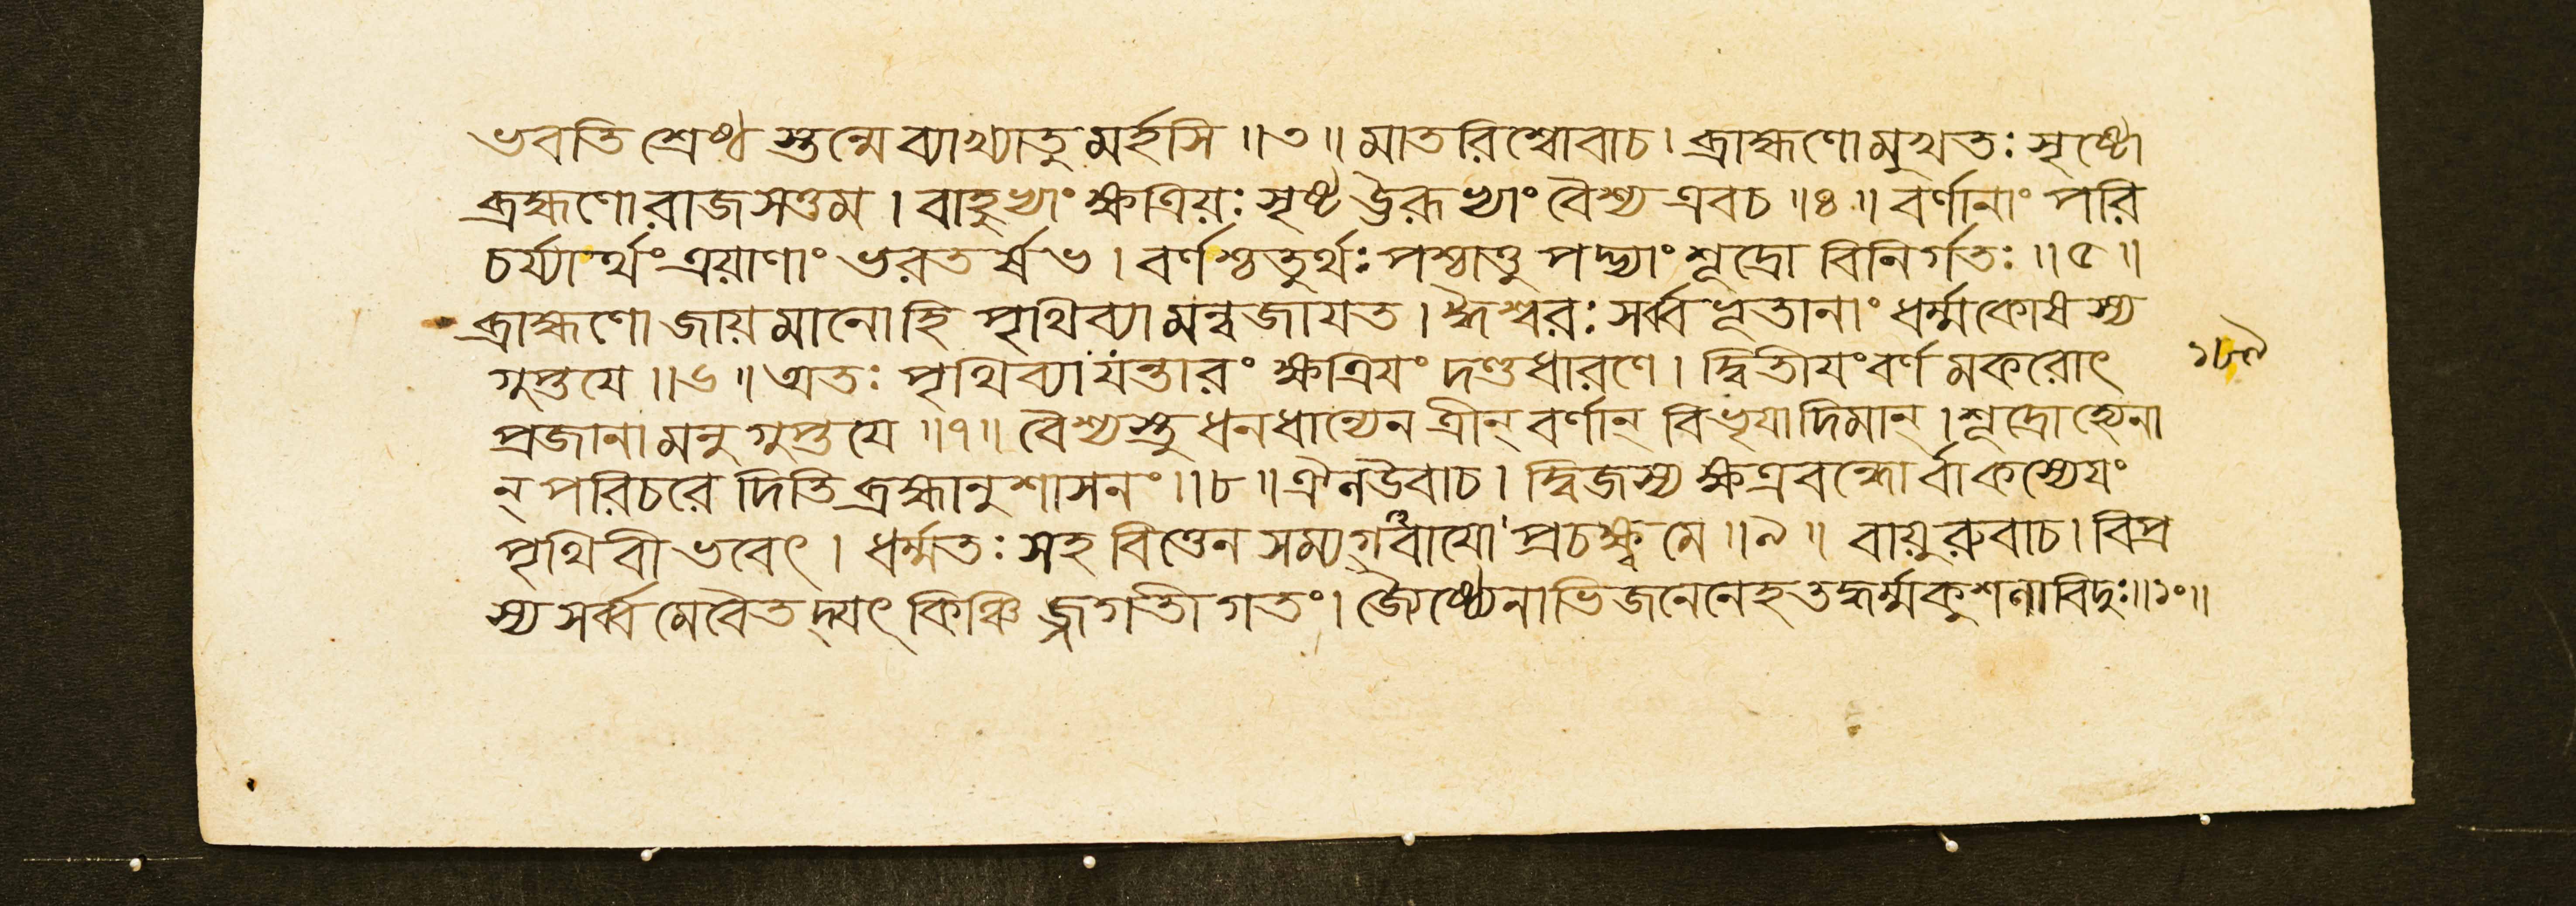 ভবতি শ্রেষ্ঠ স্তন্মে ব্যাখ্যাতু মর্হসি ॥৩॥ মাতরিশ্বোবাচ। ব্রাহ্মণো মুখতঃ সৃষ্টো
ব্রহ্মণো রাজসত্তম । বাহুভ্যাং ক্ষত্রিয়ঃ সৃষ্ট ঊরূভ্যাং বৈশ্য এবচ ॥৪॥ বর্ণানাং পরি
চর্য্যার্থং ত্রয়াণাং ভরতর্ষভ । বর্ণশ্চতুর্থঃ পশ্চাত্তু পদ্ভ্যাং শূদ্রো বিনির্গতঃ ॥৫॥
ব্রাহ্মণো জায়মানো হি পৃথিব্যা মন্বজাযত । ঈশ্বরঃ সর্ব্বভূতানাং ধর্ম্মকোষস্য
গুপ্তযে ॥৬॥ অতঃ পৃথিব্যা যন্তারং ক্ষত্রিযং দণ্ডধারণে । দ্বিতীযং বর্ণ মকরোৎ
১৮৯
প্রজানা মনু গুপ্তযে ॥৭॥ বৈশ্যস্তু ধনধান্যেন ত্রীন্ বর্ণান্ বিভৃযাদিমান্ । শূদ্রো হ্যেনা
ন্ পরিচরে দিতি ব্রহ্মানুশাসনং ॥৮॥ ঐলউবাচ । দ্বিজস্য ক্ষত্রবন্ধোর্বা কস্যেযং
পৃথিবী ভবেৎ । ধর্ম্মতঃ সহ বিত্তেন সম্যগ্বাযো প্রচক্ষ্ব মে ॥৯॥ বায়ুরুবাচ। বিপ্র
স্য সর্ব্ব মেবৈতদ্যৎ কিঞ্চি জ্জগতী গতং । জ্যৈষ্ঠ্যেনাভিজনেনেহ তদ্ধর্ম্মকুশলা বিদুঃ॥১০॥